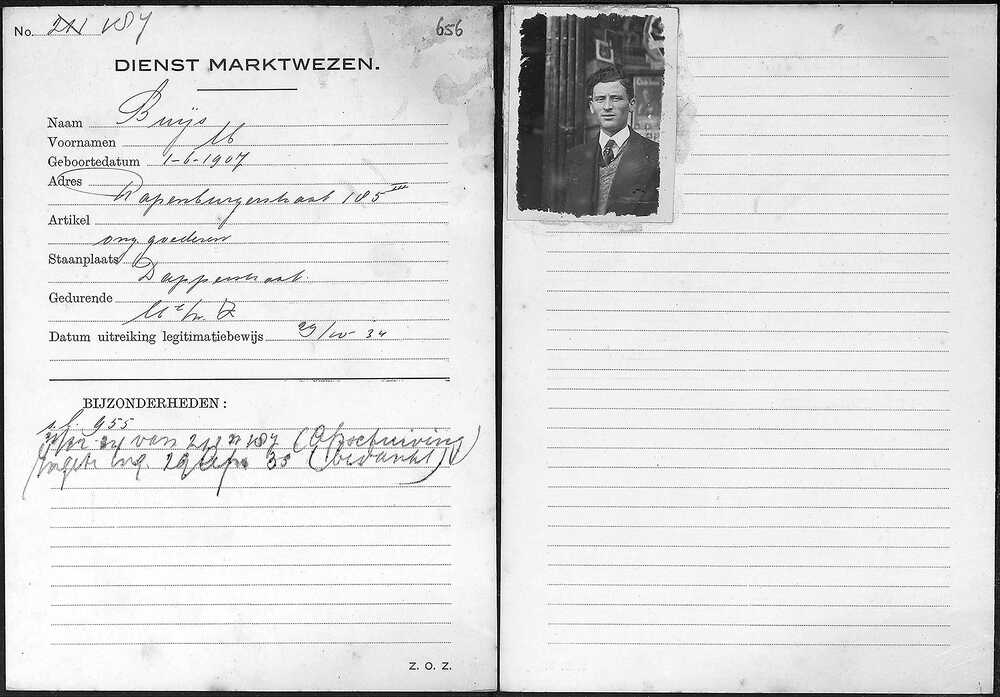 No. 187
656
DIENST MARKTWEZEN.
Naam Buijs
Voornamen M
Geboortedatum 1-6-1907
Adres
Rapenburgerstraat 185 III
Artikel
ong. goederen
Staanplaats
Dapperstraat
Gedurende
Datum uitreiking legitimatiebewijs 29/ 34
BIJZONDERHEDEN:
955
van 187 (Afschuiving)
ing. 29 35 (bedankt)
Z. O. Z.